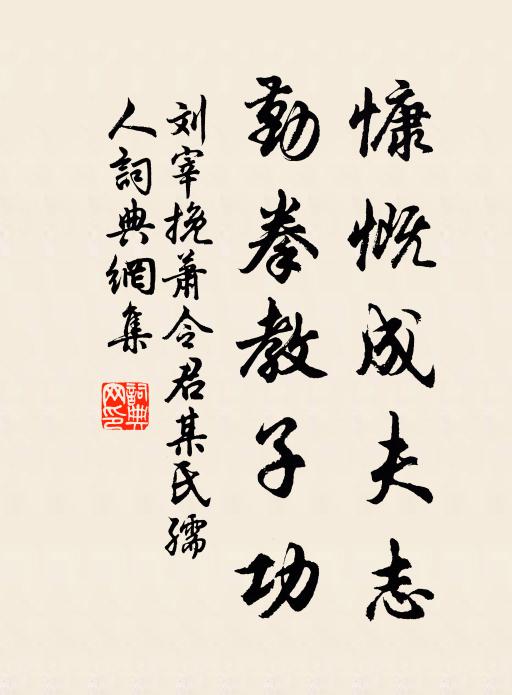 慷慨成夫志
勤拳教子功
刘宰挽萧令君某氏孺
人詞典網集
詞典
网印